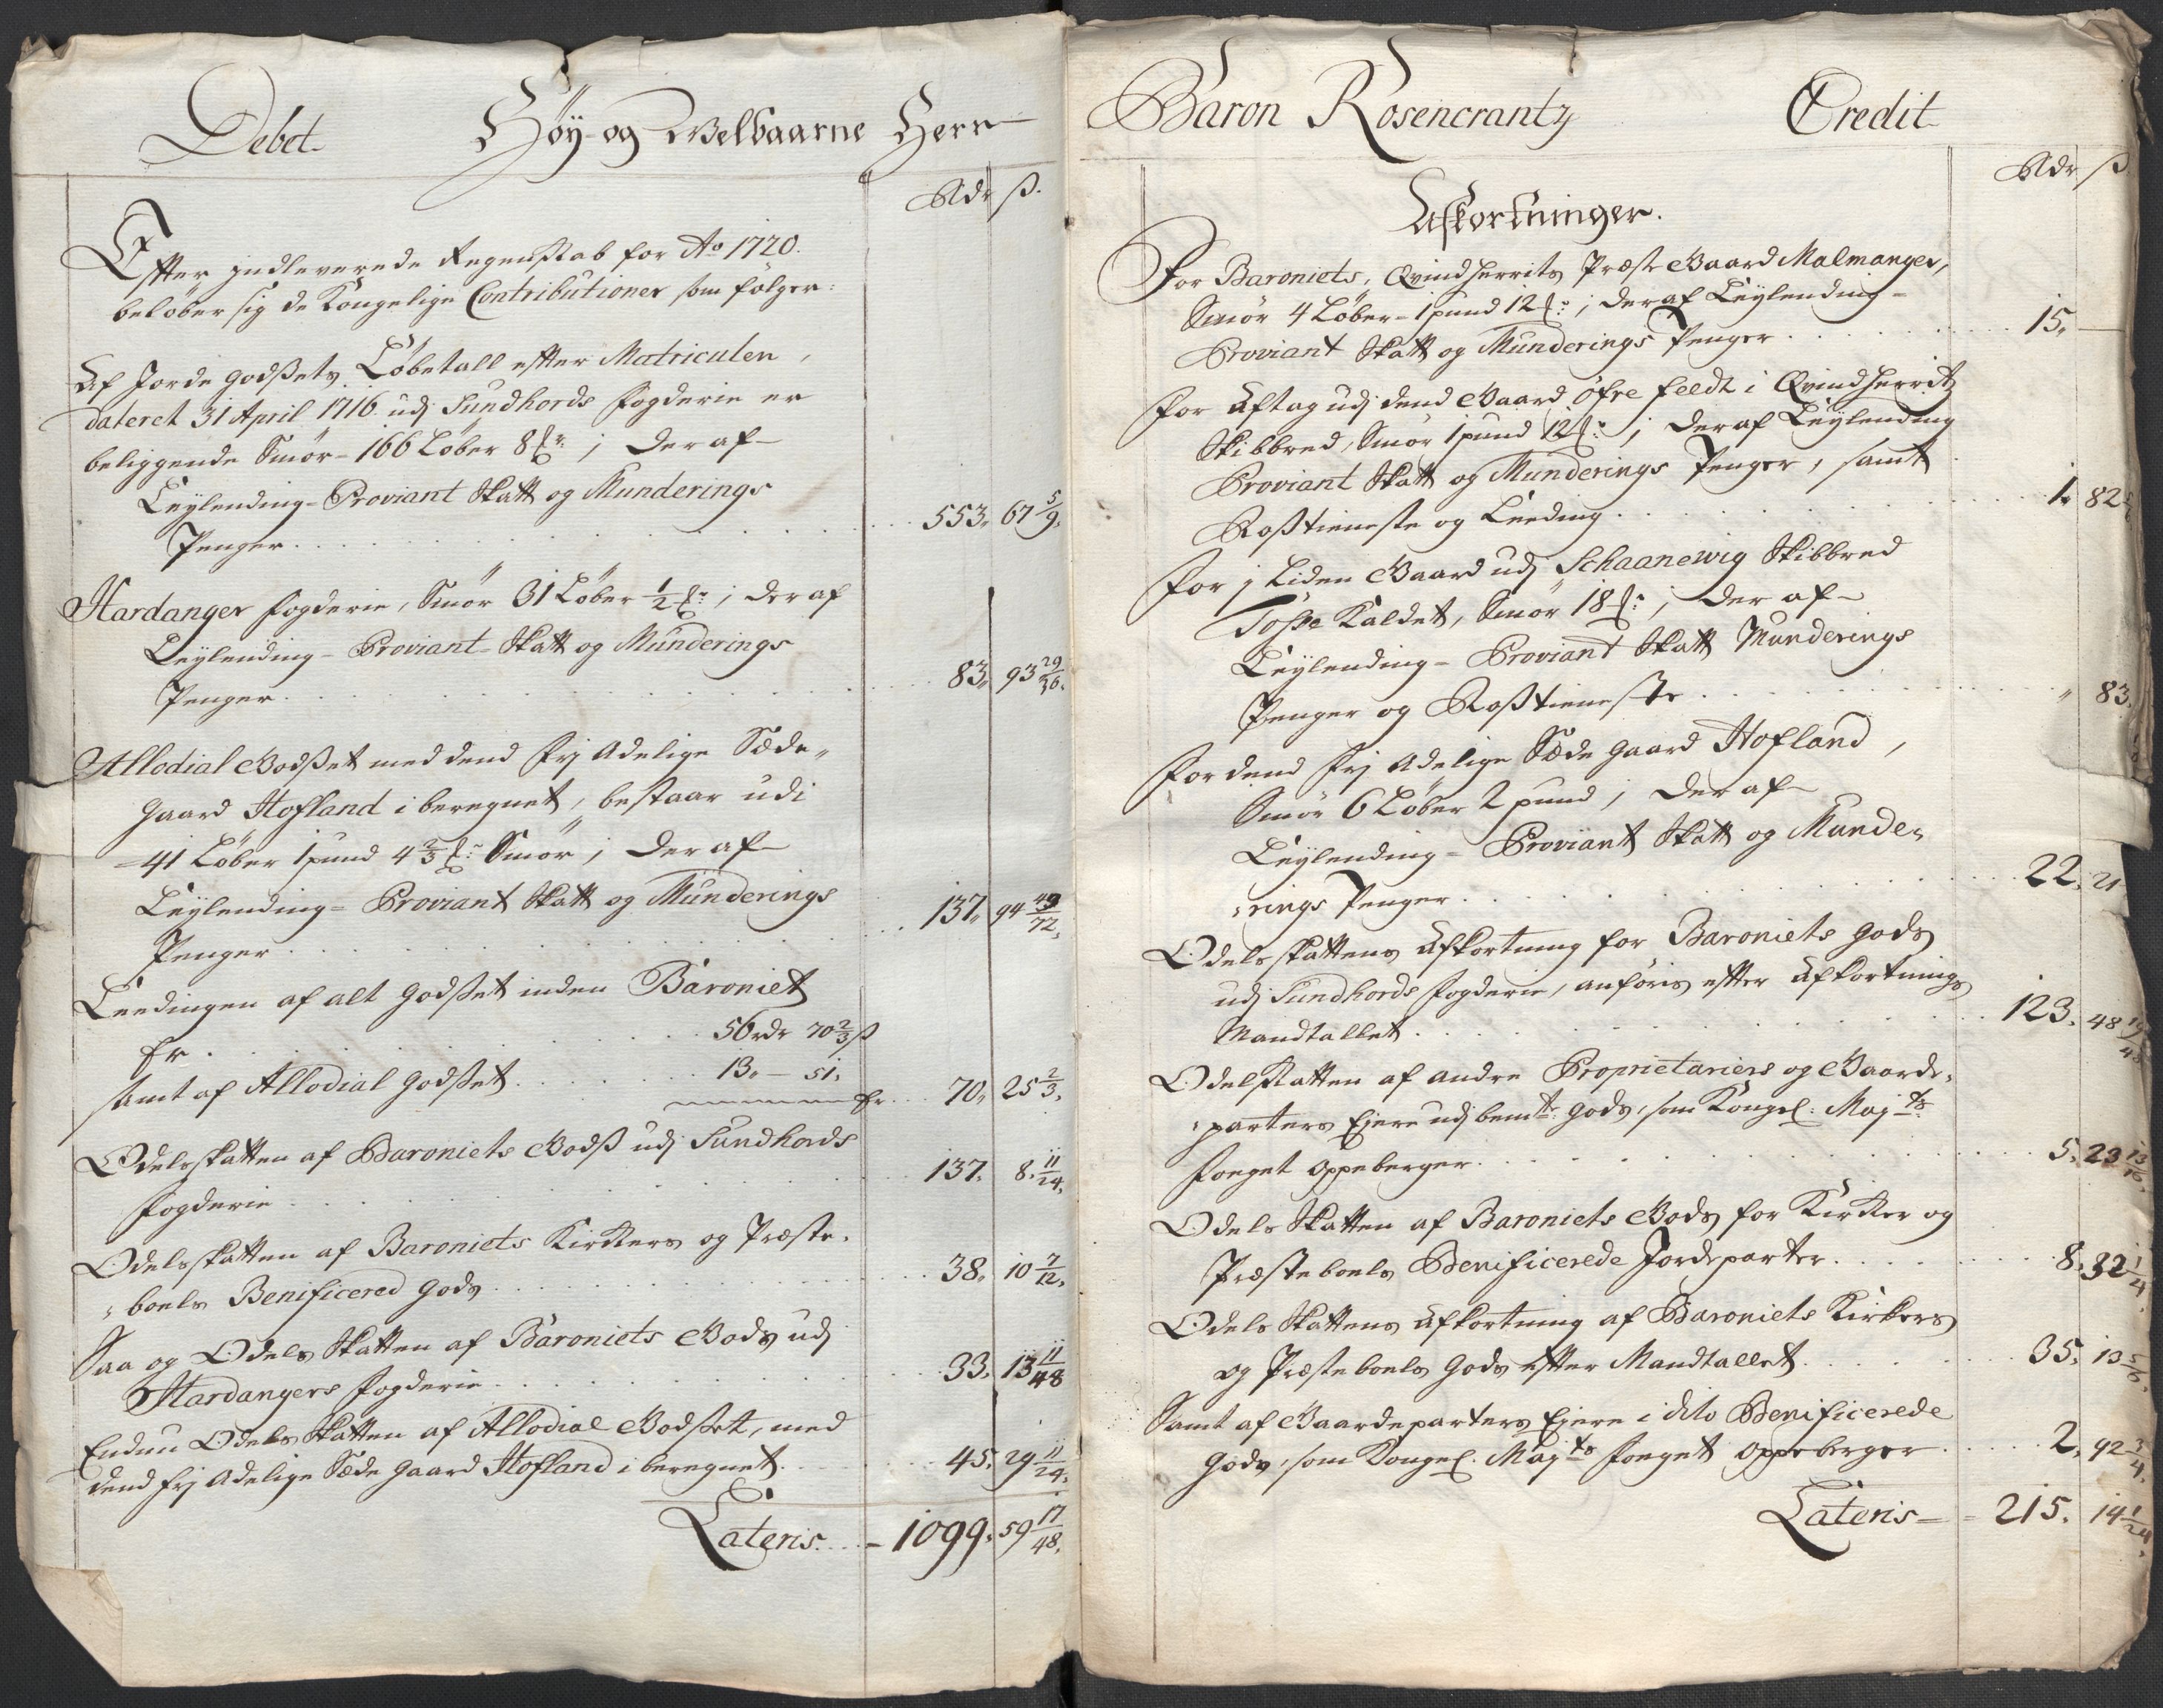 Debet Høy og Welbaarne Herr
Rdr ß.
Efter indleverede Regenskab for Ao 1720.
beløber sig de Kongelige Contributioner som følger:
Af Jorde Godßets Løbetall efter Matriculen,
dateret 31 April 1716. udj Sundhords Fogderie er
beliggende Smør - 166 Løber 8 ; Deraf
Leylending - Proviant Skatt og Munderings
Penger . . . 553. 67 5/9.
Hardanger Fogderie, Smør 31 Løber 1/2 ; deraf
Leylending - Proviant - Skatt og Munderings
Penger . . . 83. 93 29/36.
Allodial Godßet med dend frj Adelige Sæde,,
gaard Hofland i beregnet, bestaar udi
41 Løber 1 pund 4 2/3 Smør ; Deraf
Leylending - Proviant Skatt og Munderings
Penger . . . 137. 94 49/72.
Leedingen af alt Godßet inden Baroniet
Er . . . 56 rdr 70 2/3 ß
samt af Allodial Godßet . . . 13. - 51.
Er . . . 70. 25 2/3.
Odelsskatten af Baroniets Godß udj Sundhords
Fogderie . . . 137. 8. 11/24.
Odelsskatten af Baroniets Kirkers og Præste,
,boels Benificered Gods . . . 38. 10 7/12.
Saa og Odels Skatten af Baroniets Gods udj
Hardangers Fogderie . . . 33. 13 11/48
Endnu Odels Skatten af Allodial Godßet, med
dend frj Adelige Sæde Gaard Hofland i beregnet. 45. 29 11/24.
Lateris . . . - 1099. 59 17/48.
Baron Rosencrantz Credit
Rdr ß.
Afkortninger.
For Baroniets, Qvindherrits Præste Gaard Malmanger,
Smør 4 Løber - 1 pund 12 ; Deraf Leylending -
Proviant Skatt og Munderings Penger . . . 15.
For Aftag udj dend Gaard Øfre Feedt i Qvindherritz
Skibbred, Smør 1 pund 12 ; Deraf Leylending
Proviant Skatt og Munderings Penger, samt
Roßtieneste og Leeding . . . 1. 82
For j Liden Gaard udj Schaanewig Skibbred
Toße Kaldet, Smør 18 ; Der af
Leylending - Proviant Skatt Munderings
Penger og Roßtieneste . . . " 83.
For dend frj Adelige Sæde Gaard Hofland,
Smør 6 Løber 2 pund ; Der af
Leylending - Proviant Skatt og Munde,,
,rings Penger . . . 22. 21
Odels skattens Afkortning for Baroniets Gods
udj Sundhords Fogderie, anføris efter Afkortnings
Mandtallet . . . 123. 48 19/48
OdelsSkatten af andre Proprietariers og Gaarde,
,parters Ejere udj bemte Gods, som Kongel: Majts
Foeget Oppeberger . . . 5. 23 13/16.
Odels Skatten af Baroniets Gods for Kirker og
Præsteboels Benificerede Jordeparter . . . 8. 32 1/4.
Odels Skattens Afkortning af Baroniets Kirkers
og Præsteboels Gods efter Mandtallet . . . 35. 13 5/6.
Samt af Gaardeparters Ejere i dito Benificerede
Gods, som Kongel. Majts Foeget Oppeberger . . . 2. 92 3/4.
Lateris - - 215. 14 1/24.